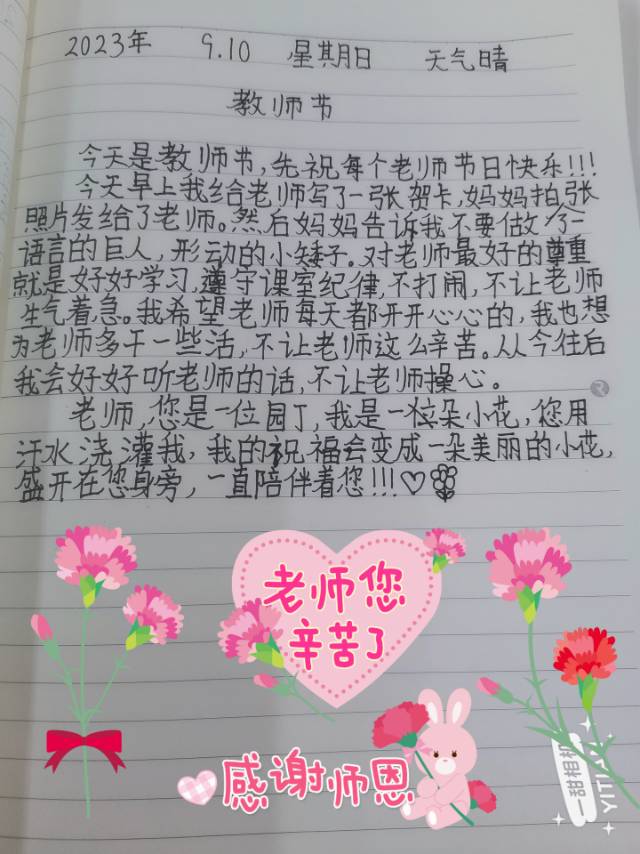 2023年 9.10 星期日 天气晴
教师节
今天是教师节,先祝每个老师节日快乐!!!
今天早上我给老师写了一张贺卡,妈妈拍张
照片发给了老师。然后妈妈告诉我不要做一个
语言的巨人,形动的小矮子。对老师最好的尊重
就是好好学习,遵守课室纪律,不打闹,不让老师
生气着急。我希望老师每天都开开心心的,我也想
为老师多干一些活,不让老师这么辛苦。从今往后
我会好好听老师的话,不让老师操心。
老师,您是一位园丁,我是一位朵小花,您用
汗水浇灌我,我的祝福会变成一朵美丽的小花,
盛开在您身旁,一直陪伴着您!!!
老师您
辛苦了
感谢师恩
一甜相机
YITI